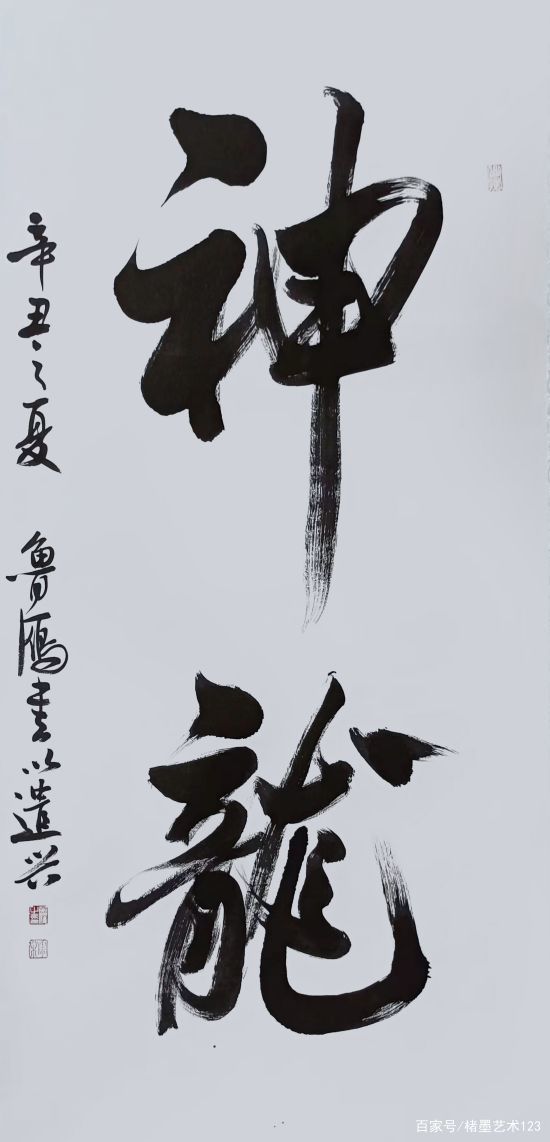 神龍
辛丑之夏 魯鴈書以遣兴
百家号/楮墨艺术123